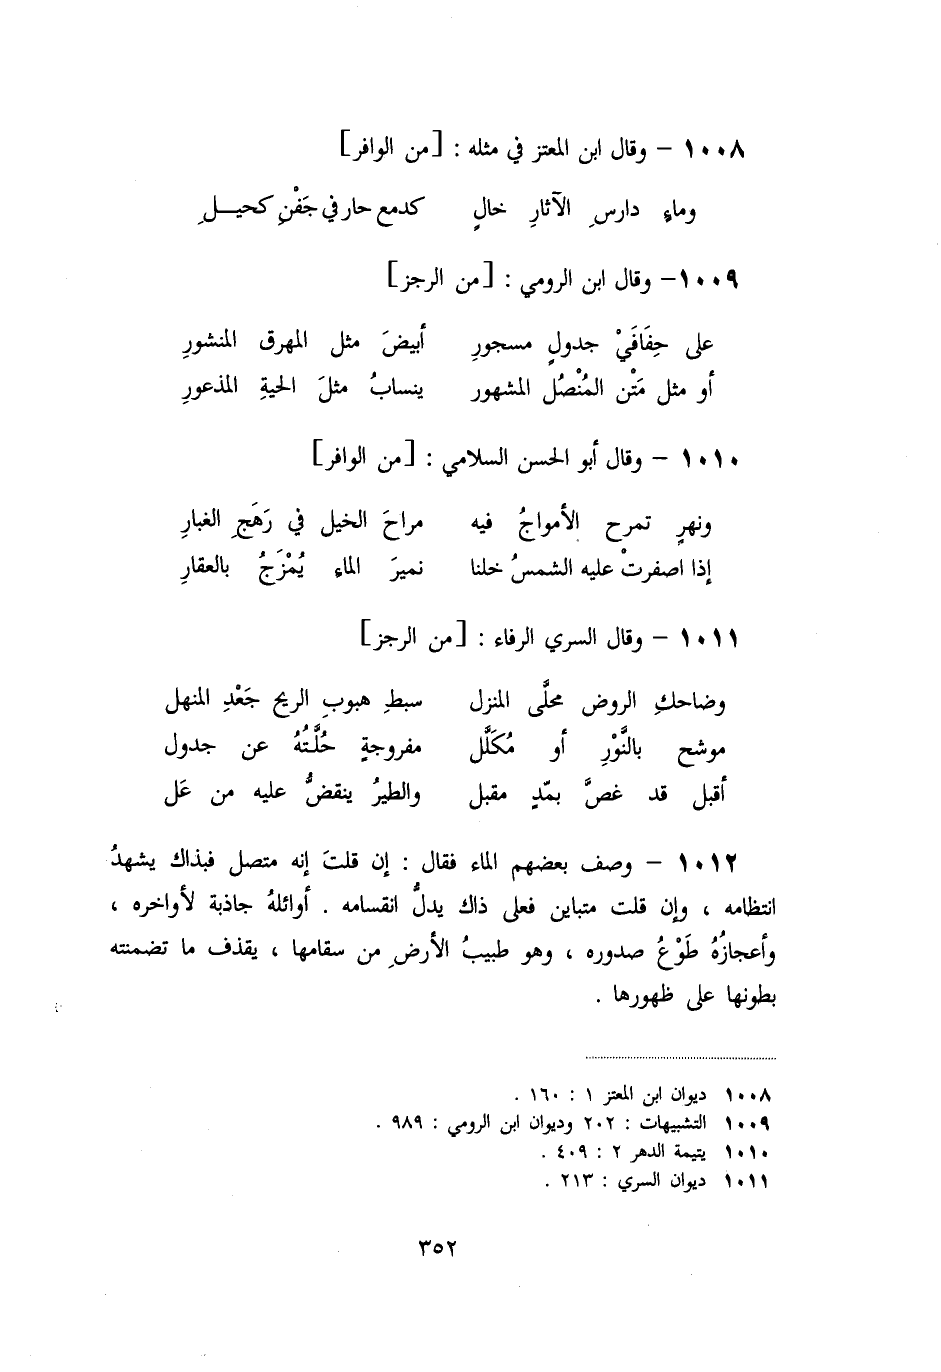 ١٠٠٨ – وقال ابن المعتز في مثله : [من الوافر]
وماءٍ دارسِ الآثارِ خالٍ كدمع حار في جَفْنِ كحيلِ
١٠٠٩ – وقال ابن الرومي : [من الرجز]
على حِفَافَيْ جدولٍ مسجورِ أبيضَ مثل المهرق المنشورِ
أو مثل مَتْن المُنْصُل المشهور ينسابُ مثلَ الحيةِ المذعورِ
١٠١٠ – وقال أبو الحسن السلامي : [من الوافر]
ونهرٍ تمرح الأمواجُ فيه مراحَ الخيل في رَهَجِ الغبارِ
إذا اصفرتْ عليه الشمسُ خلنا نميرَ الماء يُمْزَجُ بالعقارِ
١٠١١ – وقال السري الرفاء : [من الرجز]
وضاحكِ الروض محلَّى المنزل سبطِ هبوبِ الريح جَعْدِ المنهل
موشح بالنَّوْرِ أو مُكَلَّل مفروجةٍ حُلَّتُهُ عن جدول
أقبل قد غصَّ بمّدٍ مقبل والطيرُ ينقضُّ عليه من عَل
١٠١٢ – وصف بعضهم الماء فقال : إن قلتَ إنه متصل فبذاك يشهدُ
انتظامه ، وإن قلت متباين فعلى ذاك يدلُّ انقسامه . أوائلهُ جاذبة لأواخره ،
وأعجازُهُ طَوْعُ صدوره ، وهو طبيبُ الأرضِ من سقامها ، يقذف ما تضمنته
بطونها على ظهورها .
١٠٠٨ ديوان ابن المعتز ١ : ١٦٠ .
١٠٠٩ التشبيهات : ٢٠٢ وديوان ابن الرومي : ٩٨٩ .
١٠١٠ يتيمة الدهر ٢ : ٤٠٩ .
١٠١١ ديوان السري : ٢١٣ .
٣٥٢